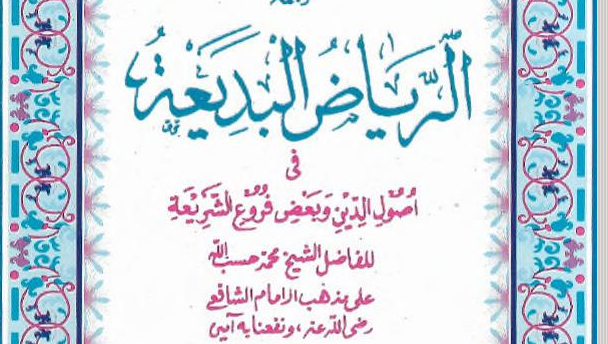 الرِّيَاضُ الْبَدِيْعَةُ
فى
أُصُوْلِ الدِّيْنِ وَبَعْضِ فُرُوْعِ الشَّرِيْعَةِ
للفاضل الشيخ محمد حسب الله
على مذهب الإمام الشافعى
رضى الله عنه ، ونفعنا به آمين